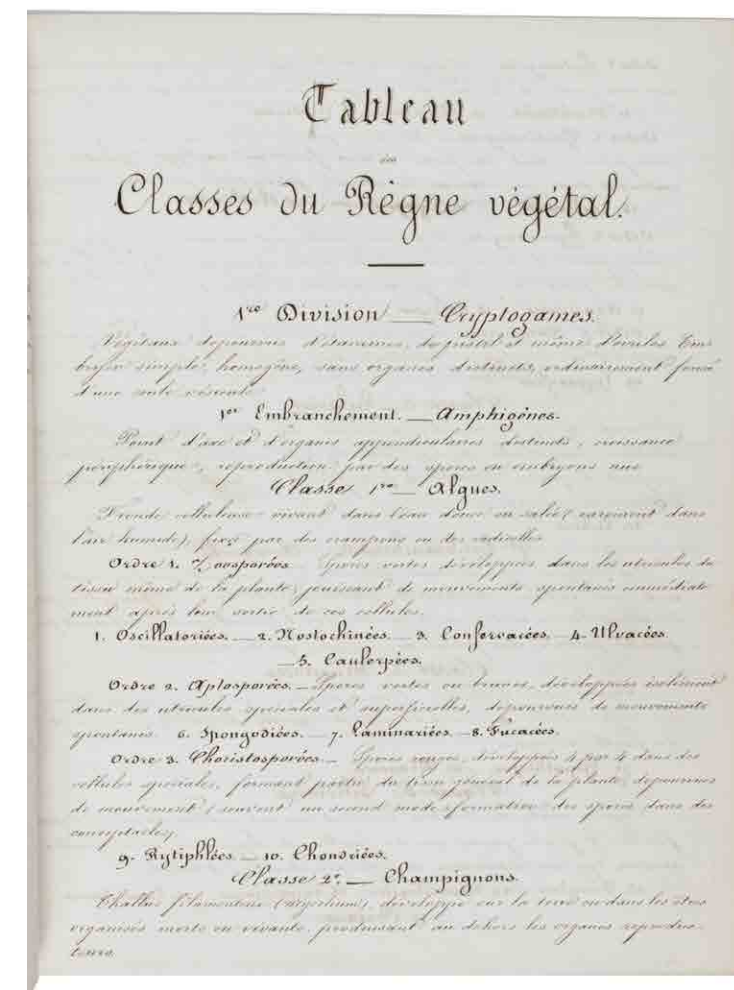 Tableau
des
Classes du Règne végétal.
1re Division — Cryptogames.
Végétaux dépourvus d'étamines, de pistil et même d'ovules Em-
bryon simple, homogène, sans organes distincts, ordinairement formé
d'une seule vésicule
1er Embranchement. — Amphigènes.
Point d'axe et d'organes appendiculaires distincts, croissance
périphérique, reproduction par des spores ou embryons nus
Classe 1re — Algues.
Fronde celluleuse vivant dans l'eau douce ou salée (rarement dans
l'air humide), fixée par des crampons ou des radicelles
Ordre 1. Zoosporées. Spores vertes développées dans les utricules du
tissu même de la plante, jouissant de mouvements spontanés immédiate
ment après leur sortie de ces cellules.
1. Oscillatoriées. — 2. Nostochinées. — 3. Confervacées. — 4. Ulvacées.
— 5. Caulerpées.
Ordre 2. Aplosporées. — Spores vertes ou brunes, développées isolément
dans des utricules spéciales et superficielles, dépourvues de mouvements
spontanés. 6. Spongodiées. — 7. Laminariées. — 8. Fucacées.
Ordre 3. Choristosporées. — Spores rouges, développées 4 par 4 dans des
cellules spéciales, formant partie du tissu général de la plante, dépourvues
de mouvement (souvent un second mode formation des spores dans des
conceptacles).
9. Rytiphlées. — 10. Chondriées.
Classe 2e. — Champignons.
Thallus filamenteux (mycelium), développé sur la terre ou dans les êtres
organisés morts ou vivants, produisant au dehors les organes reproduc-
teurs